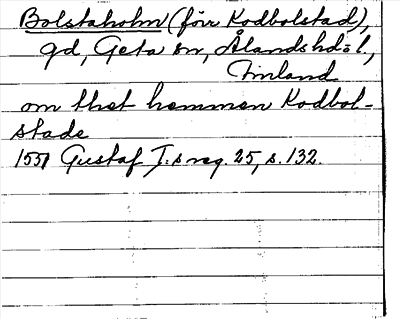 Bolstaholm (förr Kodbolstad),
gd, Geta sn, Ålands hd o l,
Finland
om thet hemman Kodbol-
stade
1551 Gustaf I:s reg. 25, s. 132.